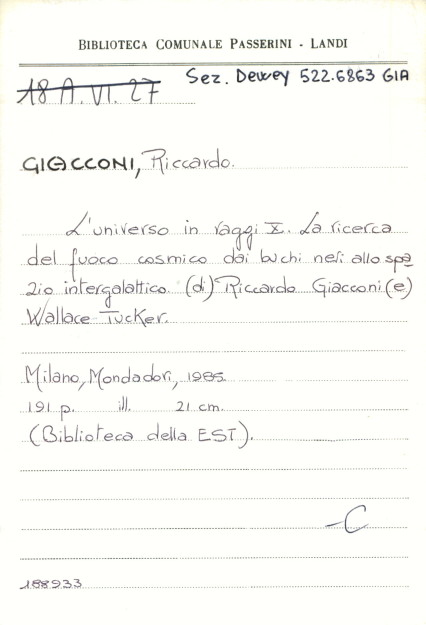 BIBLIOTECA COMUNALE PASSERINI - LANDI
18 A. VI. 27 Sez. Dewey 522.6863 GIA
GIACCONI, Riccardo.
L'universo in raggi X. La ricerca
del fuoco cosmico dai buchi neri allo spa
zio intergalattico. (di) Riccardo Giacconi (e)
Wallace Tucker.
Milano, Mondadori, 1985
191 p. ill. 21 cm.
(Biblioteca della EST).
-C
188933